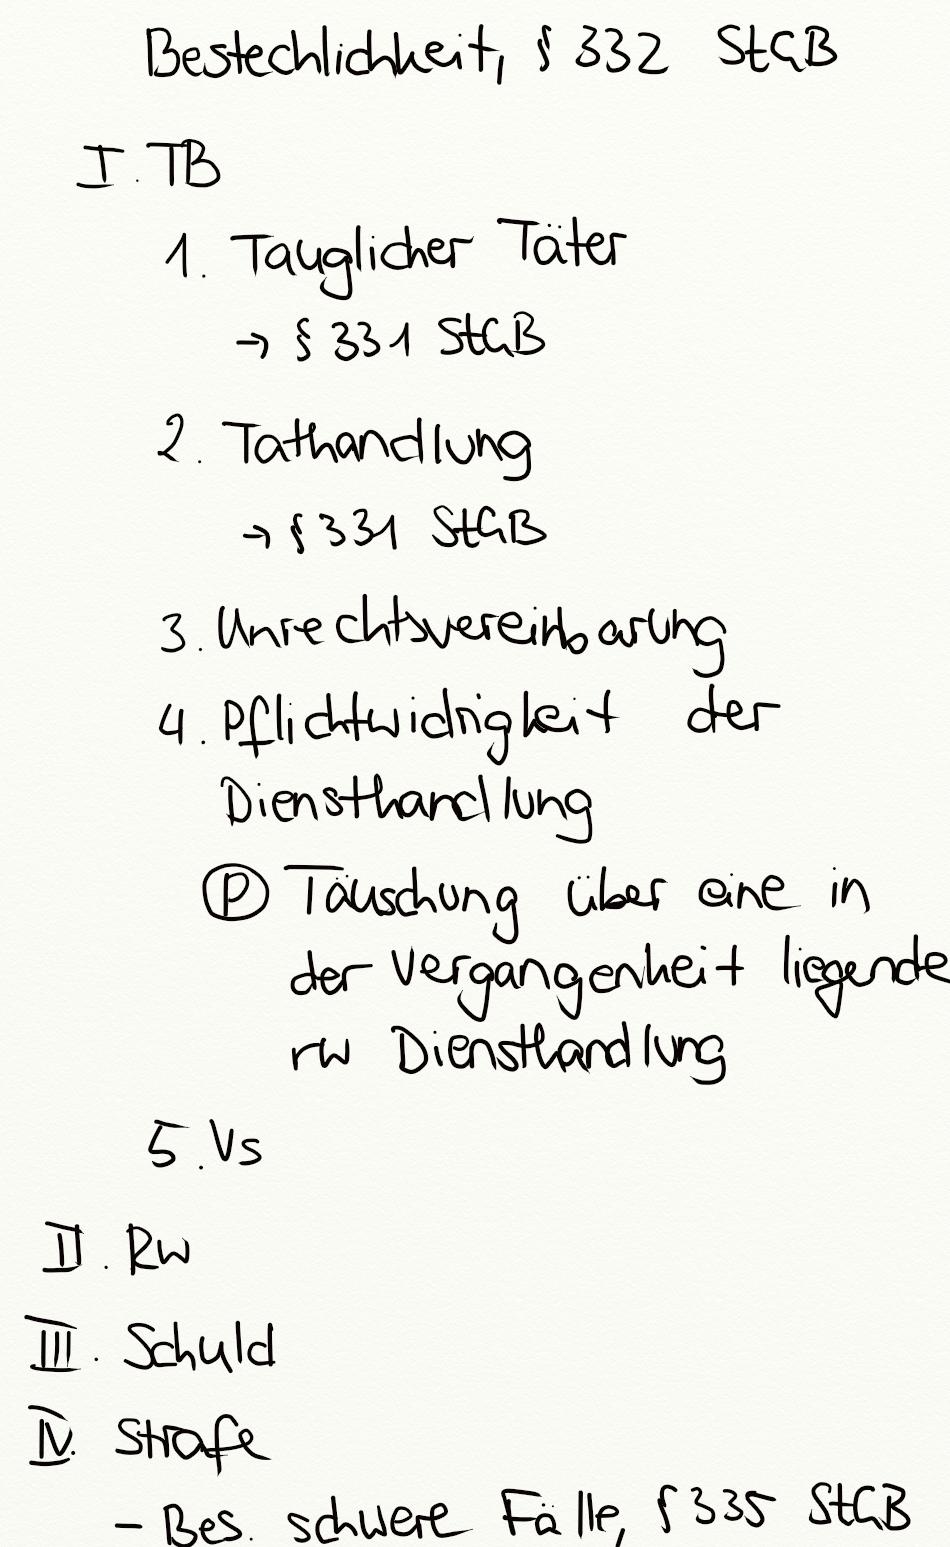 Bestechlichkeit, § 332 StGB
I. TB
1. Tauglicher Täter
→ § 331 StGB
2. Tathandlung
→ § 331 StGB
3. Unrechtsvereinbarung
4. Pflichtwidrigkeit der
Diensthandlung
Ⓟ Täuschung über eine in
der Vergangenheit liegende
rw Diensthandlung
5. Vs
II. Rw
III. Schuld
IV. Strafe
- Bes. schwere Fälle, § 335 StGB